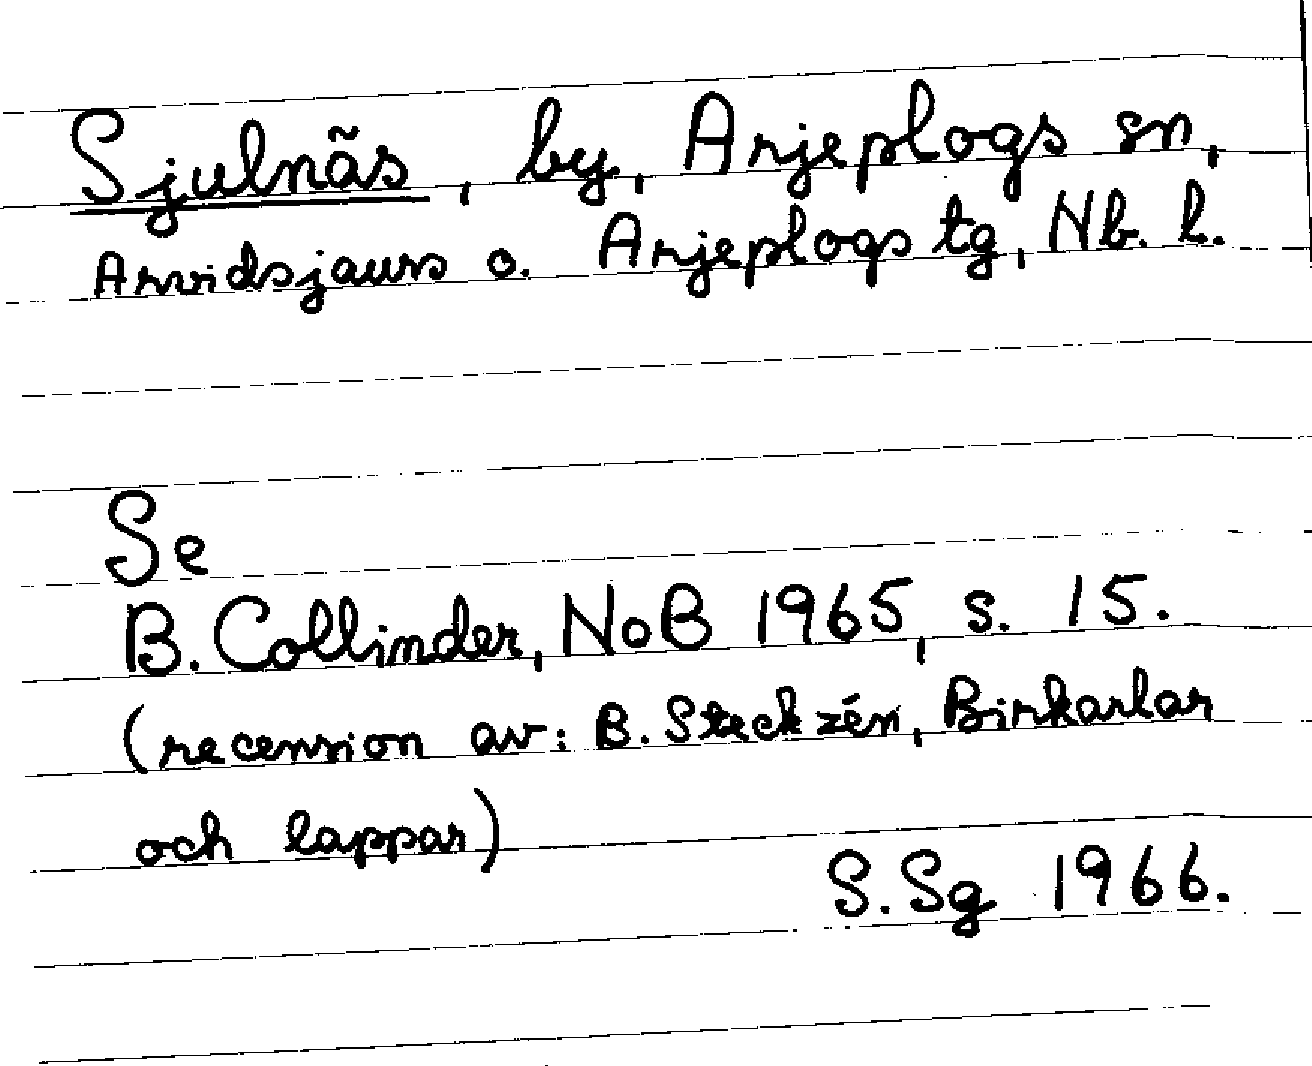 Sjulnäs, by, Arjeplogs sn,
Arvidsjaurs o. Arjeplogs tg, Nb. l.
Se
B. Collinder, NoB 1965, s. 15.
(recension av: B. Steckzén, Birkarlar
och lappar)
S. Sg 1966.